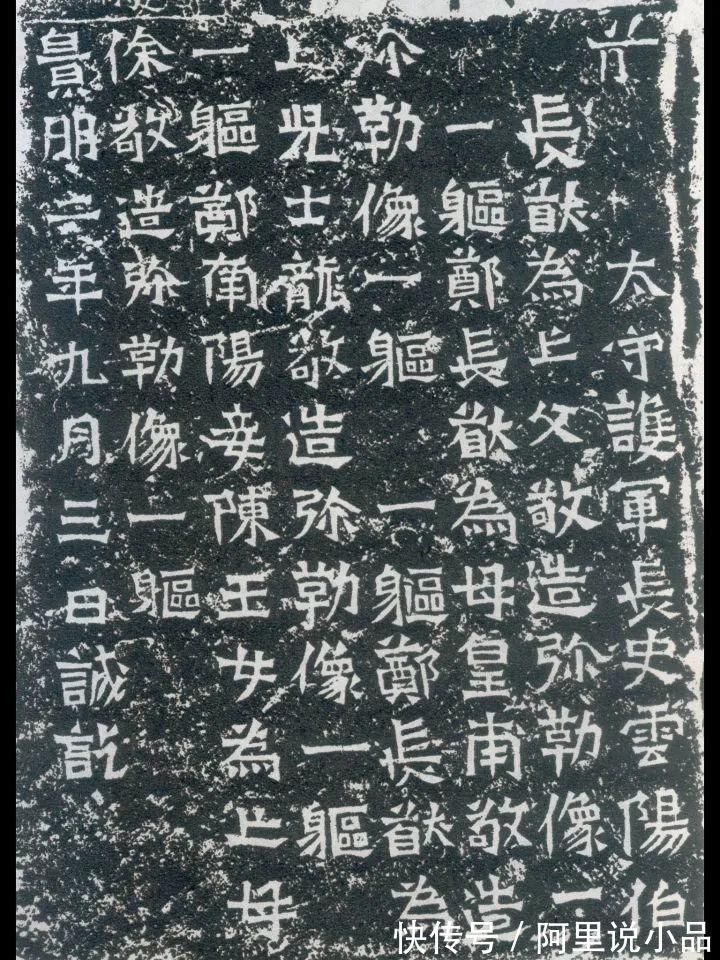 太守護軍長史雲陽伯
長猷為亡父敬造弥勒像一
一軀鄭長猷為母皇甫敬造
弥勒像一軀 一軀鄭長猷為
亡児士龍敬造弥勒像一軀
一軀鄭南陽妾陳玉女為亡母
徐敬造弥勒像一軀
景明二年九月三日誡訖
快传号/阿里说小品